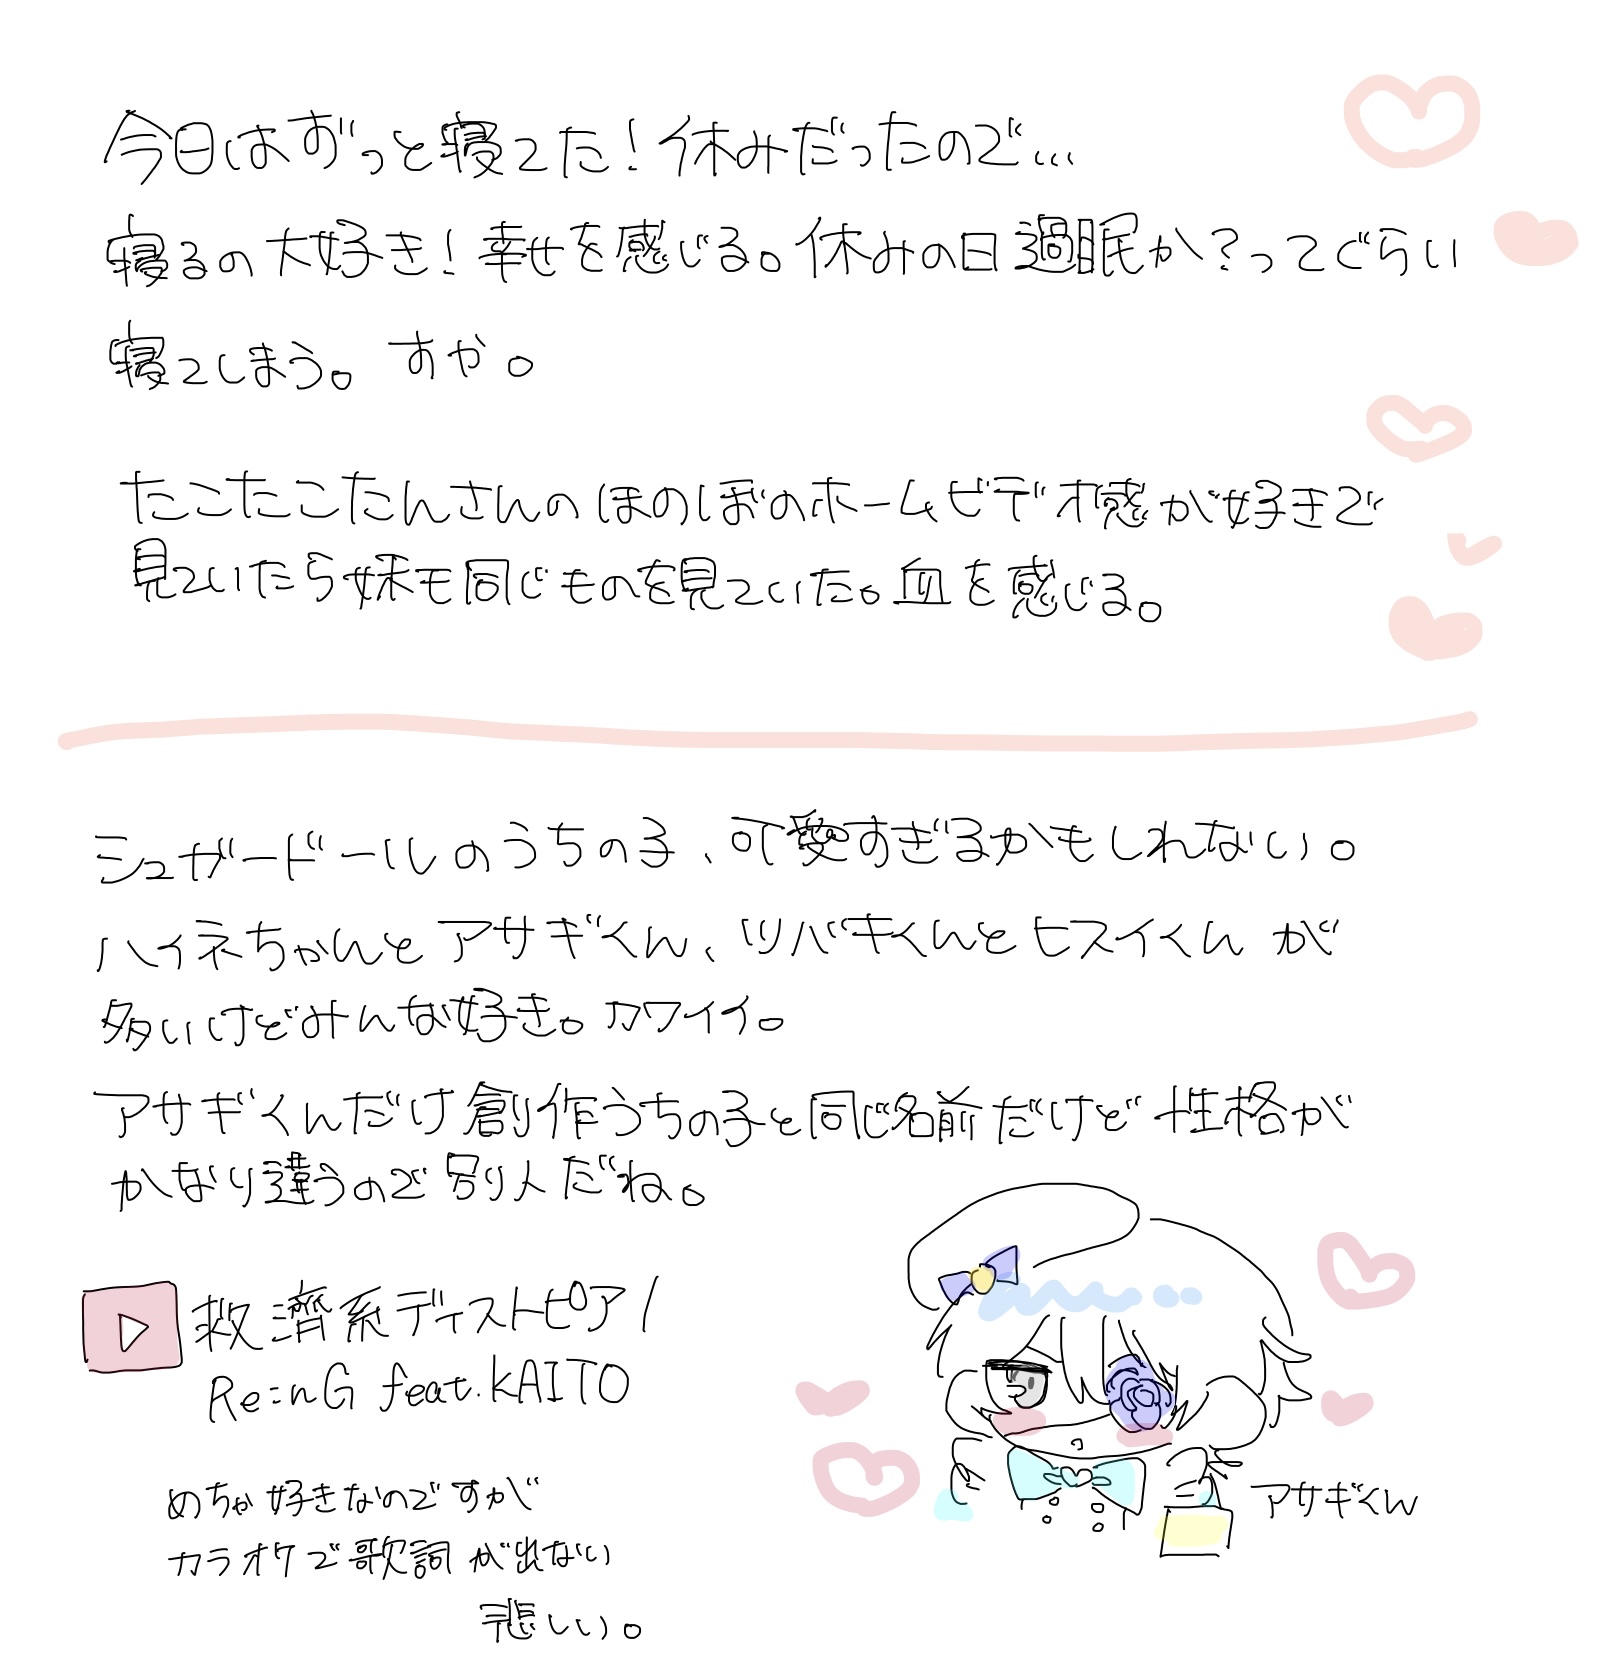 今日はずっと寝てた!休みだったので…
寝るの大好き!幸せを感じる。休みの日過眠か?ってぐらい
寝てしまう。すや。
たこたこたんさんのほのぼのホームビデオ感が好きで
見ていたら妹も同じものを見ていた。血を感じる。
シュガードールのうちの子、可愛すぎるかもしれない。
ハイネちゃんとアサギくん、ツバキくんとヒスイくんが
多いけどみんな好き。カワイイ。
アサギくんだけ創作うちの子と同じ名前だけど性格が
かなり違うので別人だね。
救済系ディストピア/
Re:nG feat.KAITO
めちゃ好きなのですが
カラオケで歌詞が出ない
悲しい。
アサギくん